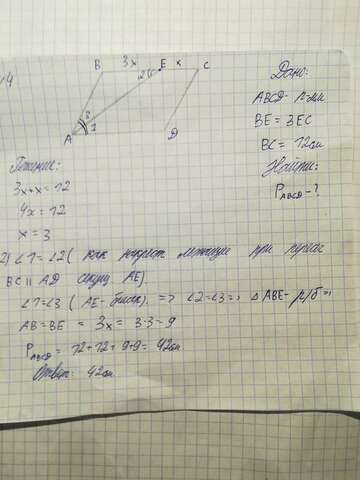 4
B 3x E x C
2
3
1
A
D
Дано:
ABCD - п-мм
BE = 3EC
BC = 12см
Найти:
P ABCD - ?
Решение:
3x+x = 12
4x = 12
x = 3
2) ∠1 = ∠2 ( как накрест лежащие при прямых
BC || AD секущ. AE).
∠1 = ∠3 ( AE - бисс.) => ∠2 = ∠3 =>, △ABE - р/б =>
AB = BE = 3x = 3·3 = 9
P ABCD = 12+12+9+9 = 42см
Ответ: 42см